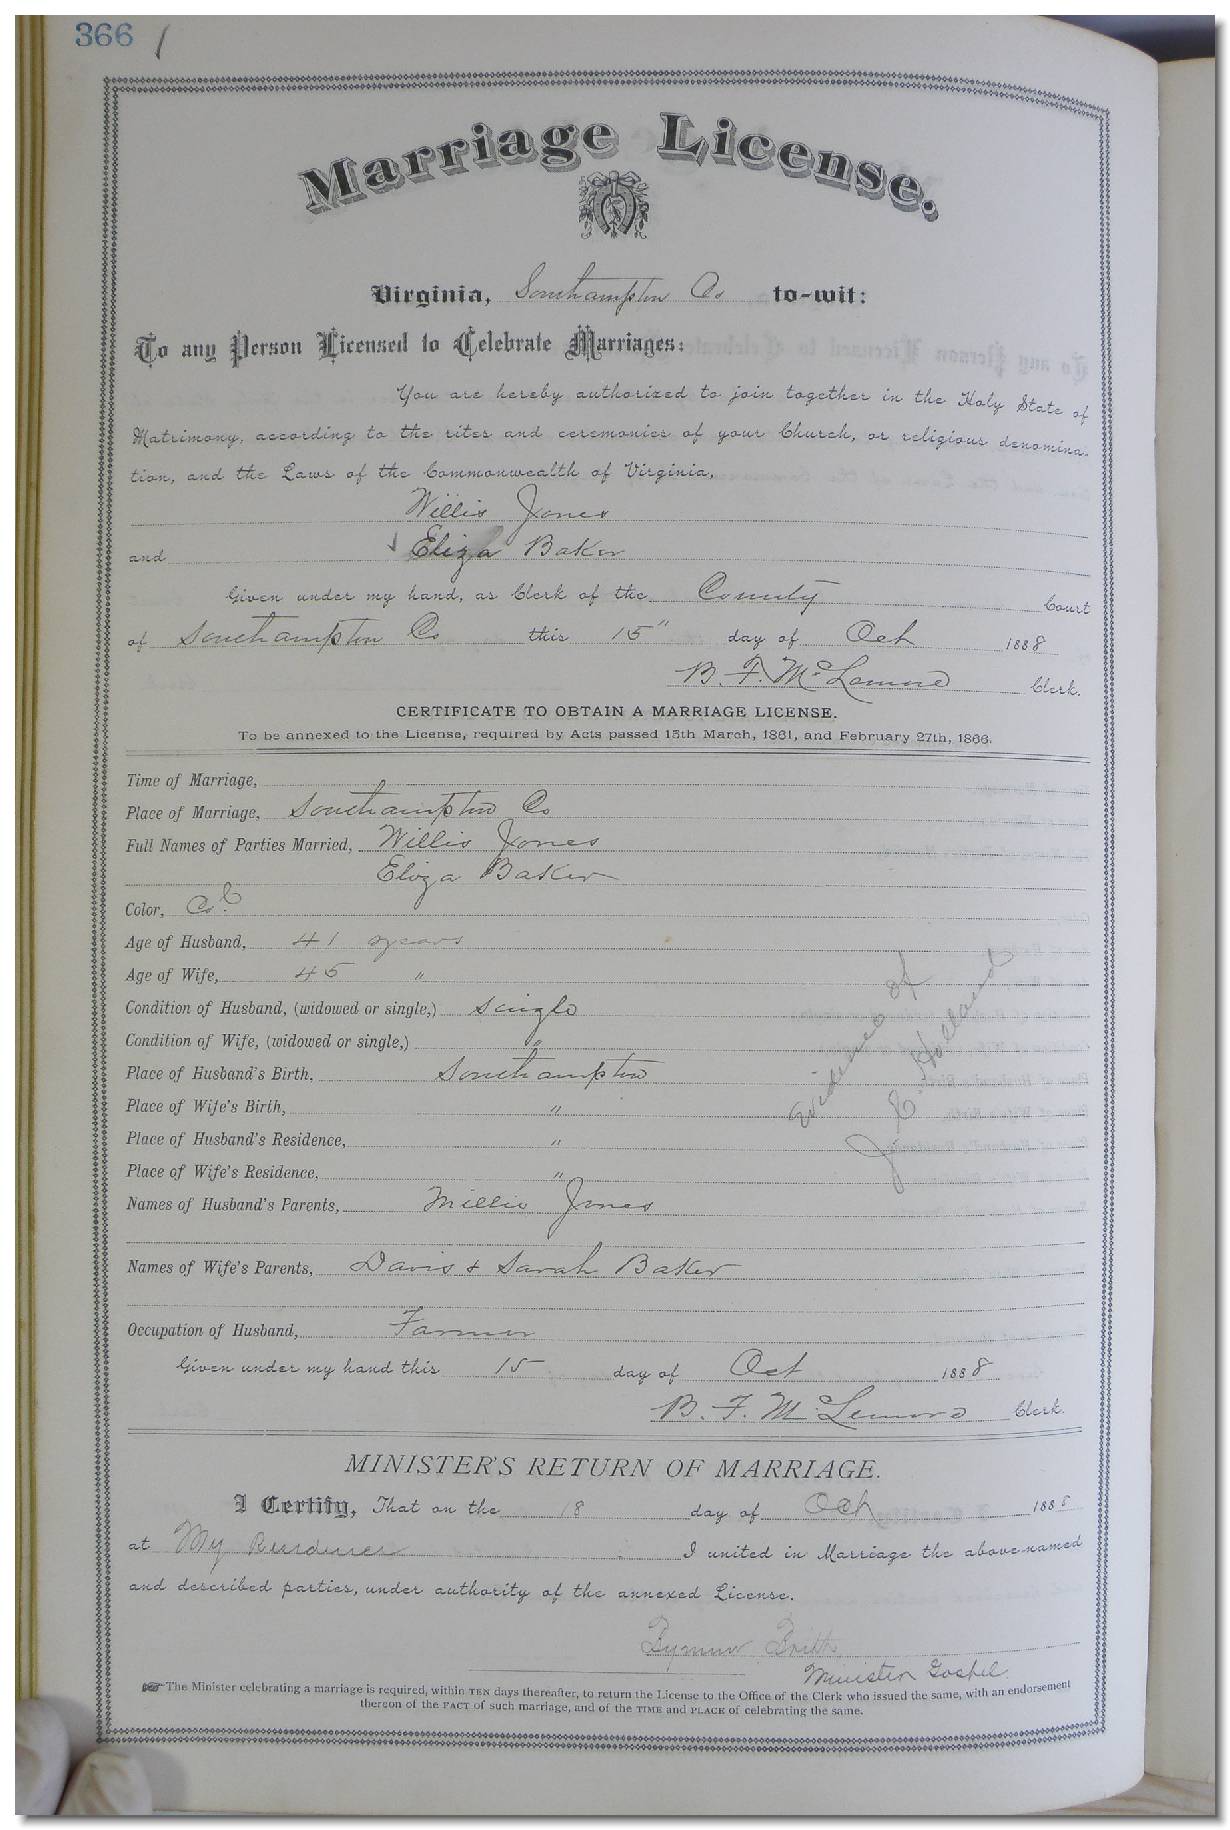 366
Marriage License.
Virginia, Southampton Co to-wit:
To any Person Licensed to Celebrate Marriages:
You are hereby authorized to join together in the Holy State of
Matrimony, according to the rites and ceremonies of your Church, or religious denomina-
tion, and the Laws of the Commonwealth of Virginia,
Willis Jones
and Eliza Baker
Given under my hand, as Clerk of the County Court
of Southampton Co this 15" day of Oct 1888
B. F. McLemore Clerk.
CERTIFICATE TO OBTAIN A MARRIAGE LICENSE.
To be annexed to the License, required by Acts passed 15th March, 1861, and February 27th, 1866.
Time of Marriage,
Place of Marriage, Southampton Co
Full Names of Parties Married, Willis Jones
Eliza Baker
Color, Col
Age of Husband, 41 years
Age of Wife, 45 "
Condition of Husband, (widowed or single,) Single
Condition of Wife, (widowed or single,) "
Place of Husband's Birth, Southampton
Place of Wife's Birth, "
Place of Husband's Residence, "
Place of Wife's Residence, "
Evidence of
J. C. Holland
Names of Husband's Parents, Millie Jones
Names of Wife's Parents, Davis & Sarah Baker
Occupation of Husband, Farmer
Given under my hand this 15 day of Oct 1888
B. F. McLemore Clerk.
MINISTER'S RETURN OF MARRIAGE.
I Certify, That on the 18 day of Oct 1888
at My Residence I united in Marriage the above-named
and described parties, under authority of the annexed License.
Minister Gospel.
The Minister celebrating a marriage is required, within TEN days thereafter, to return the License to the Office of the Clerk who issued the same, with an endorsement
thereon of the FACT of such marriage, and of the TIME and PLACE of celebrating the same.